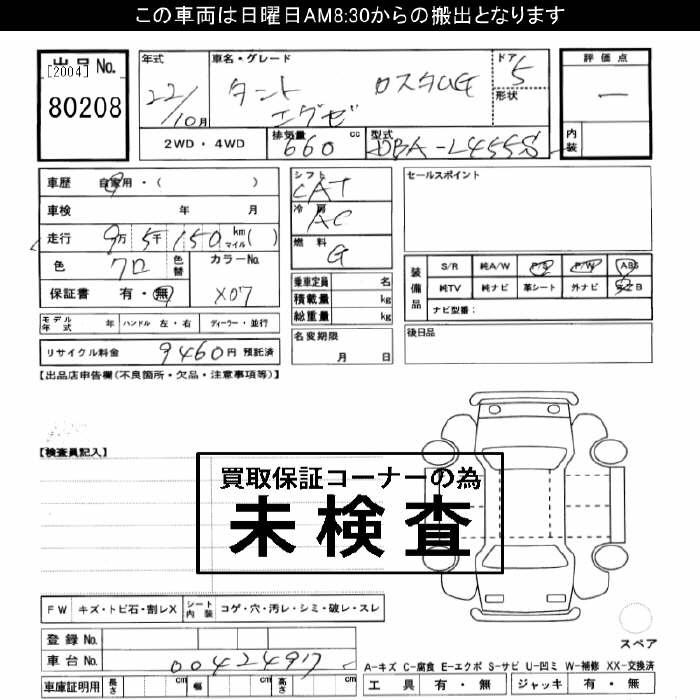 この車両は日曜日AM8:30からの搬出となります
出品 No.
[2004]
80208
年式
22/10月
車名・グレード
タント カスタムG
エグゼ
ドア
5
形状
評価点
一
内装
2WD・4WD
排気量 660 cc
型式 DBA-L455S
車歴 自家用・( )
車検 年 月
走行 9万 5千 150 km マイル( )
色 クロ 色替
カラーNo. X07
保証書 有・無
モデル年式 年 ハンドル 左・右 ディーラー・並行
リサイクル料金 9460円 預託済
シフト CAT
冷房 AC
燃料 G
乗車定員 名
積載量 kg
総重量 kg
名変期限
月 日
セールスポイント
装備品
S/R 純A/W P/S P/W ABS
純TV 純ナビ 革シート 外ナビ
ナビ型番:
後日品
【出品店申告欄(不良箇所・欠品・注意事項等)】
【検査員記入】
買取保証コーナーの為
未検査
FW キズ・トビ石・割レX シート内装 コゲ・穴・汚レ・シミ・破レ・スレ
登録 No.
車台 No. 00424917
車庫証明用 長さ cm 幅 cm 高さ cm
スペア
A-キズ C-腐食 E-エクボ S-サビ U-凹ミ W-補修 XX-交換済
工具 有・無 ジャッキ 有・無